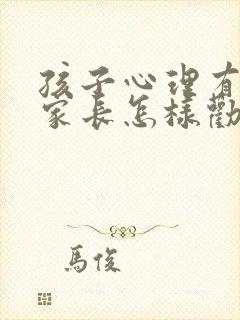 孩子心理有
家长怎样勸
馬俊